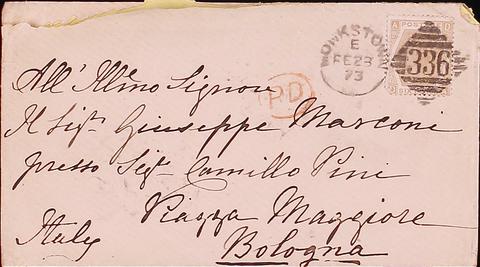 MONKSTOWN
E
FE 23
73
336
PD
All' Illmo Signor
Il Sigr Giuseppe Marconi
presso Sigr Camillo Pini
Piazza Maggiore
Italy
Bologna